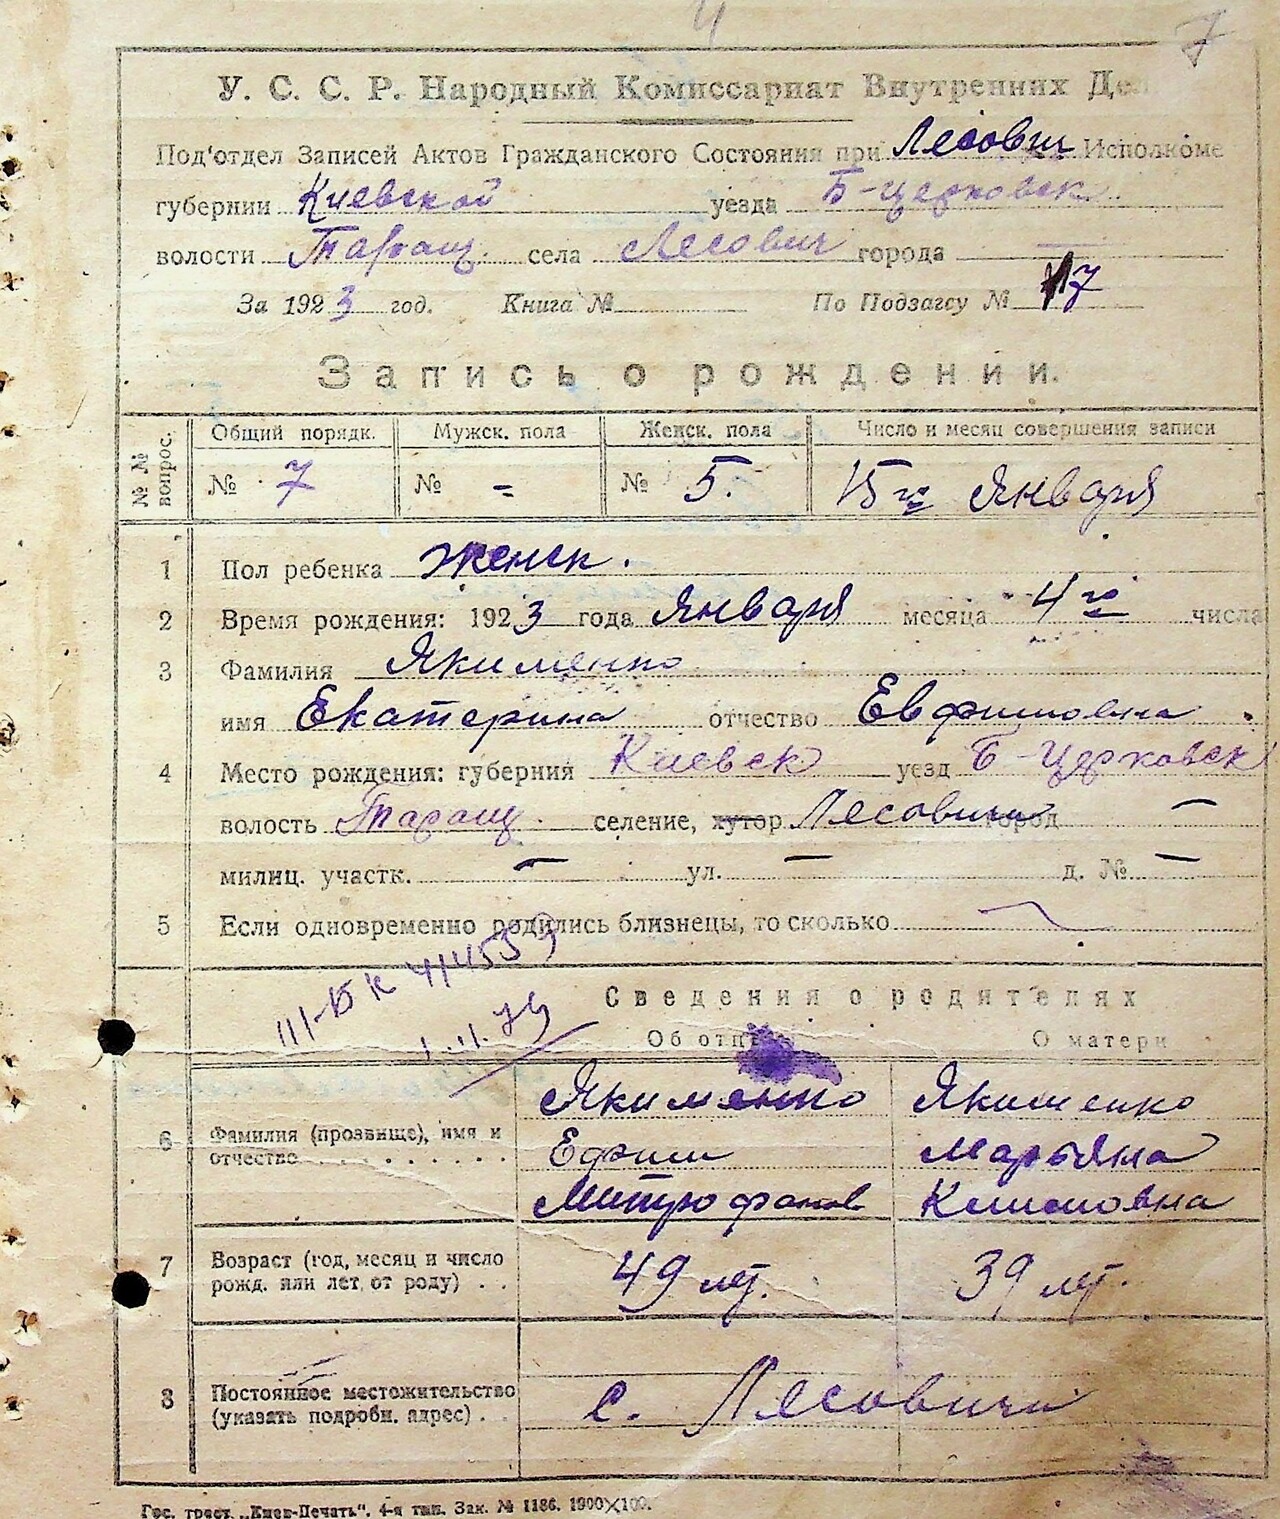 7
У. С. С. Р. Народный Комиссариат Внутренних Де
Под'отдел Записей Актов Гражданского Состояния при Лесович Исполкоме
губернии Киевской уезда Б-церковск
волости Таращ. села Лесович города —
За 1923 год. Книга № По Подзагсу № 17
Запись о рождении.
№ № вопрос. Общий порядк. Мужск. пола Женск. пола Число и месяц совершения записи
№ 7 № = № 5. 15го Января
1 Пол ребенка женск.
2 Время рождения: 1923 года Января месяца 4го числа
3 Фамилия Якименко
имя Екатерина отчество Евфимовна
4 Место рождения: губерния Киевск уезд Б-Церковск
волость Таращ. селение, хутор Лесовичи город —
милиц. участк. — ул. — д. № —
5 Если одновременно родились близнецы, то сколько
III-БК
Сведения о родителях
Об отце О матери
Якименко Якименко
6 Фамилия (прозвище), имя и Ефим Марьяна
отчество Митрофанов Климовна
7 Возраст (год, месяц и число 49 лет. 39 лет.
рожд. или лет от роду)
8 Постоянное местожительство с. Лесовичи
(указать подробн. адрес)
Гос. трест „Киев-Печать“. 4-я тип. Зак. № 1186. 1900×100.